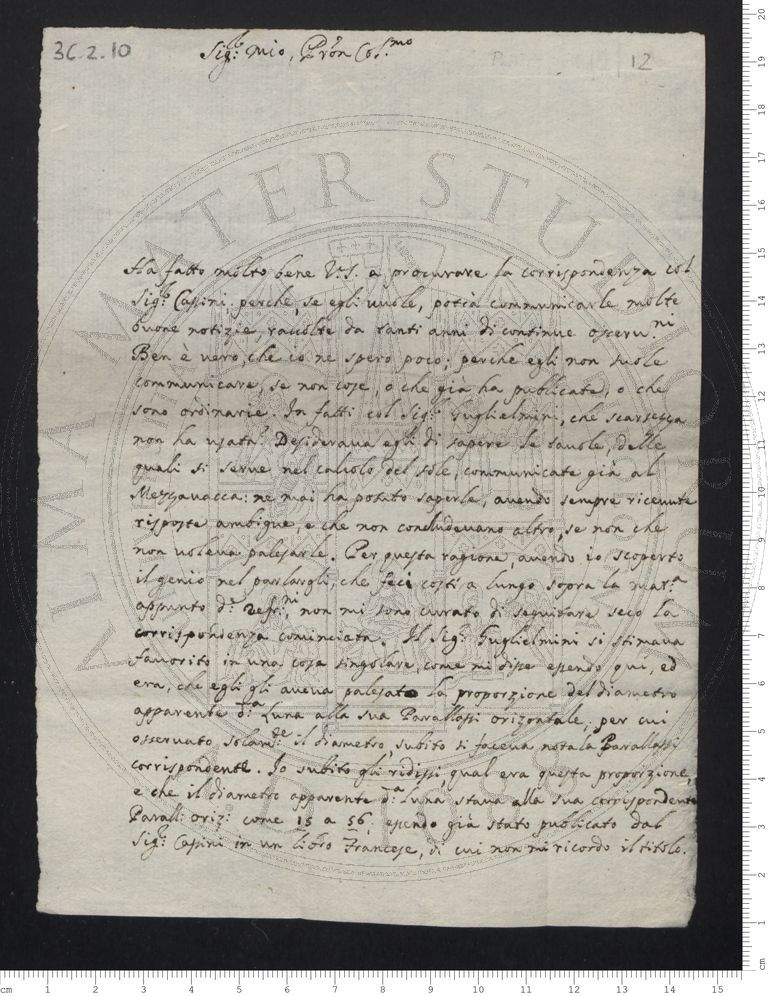 36.2.10
12
Sig.r mio, Pron Col.mo
Ha fatto molto bene V.S. a procurare la corrispondenza col
Sig.r Cassini, perche, se egli vuole, potrà communicarle molte
buone notizie, raccolte da tanti anni di continue osseru.ni
Ben è vero, che io ne spero poco; perche egli non suole
communicare, se non cose, o che già ha publicate, o che
sono ordinarie. In fatti col Sig.r Guglielmini, che scarsezza
non ha usata? Desideraua egli di sapere le tauole, delle
quali si serue nel calcolo del sole, communicate già al
Mezzavacca: ne mai ha potuto saperle, auendo sempre riceuute
risposte ambigue, e che non concludeuano altro, se non che
non uoleua palesarle. Per questa ragione, auendo io scoperto
il genio nel parlargli, che feci costi a lungo sopra la mat.a
appunto d. refr.ni, non mi sono curato di seguitare seco la
corrispondenza cominciata. Il Sig.r Guglielmini si stimaua
fauorito in una cosa singolare, come mi disse essendo qui, ed
era, che egli gli aueua palesato la proporzione del diametro
apparente d.a Luna alla sua Parallassi orizontale, per cui
osseruato solam.te il diametro, subito si faceua nota la Parallassi
corrispondente. Io subito gli ridissi, qual era questa proporzione,
e che il diametro apparente d.a Luna staua alla sua corrispondente
Parall: oriz: come 15 a 56, essendo già stato publicato dal
Sig.r Cassini in un libro Francese, di cui non mi ricordo il titolo.
ALMA MATER STUDIORUM